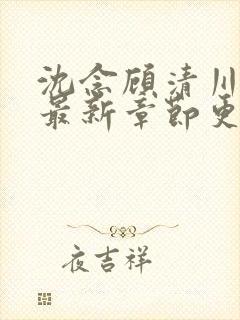 沈念顾清川
最新章节更
夜吉祥